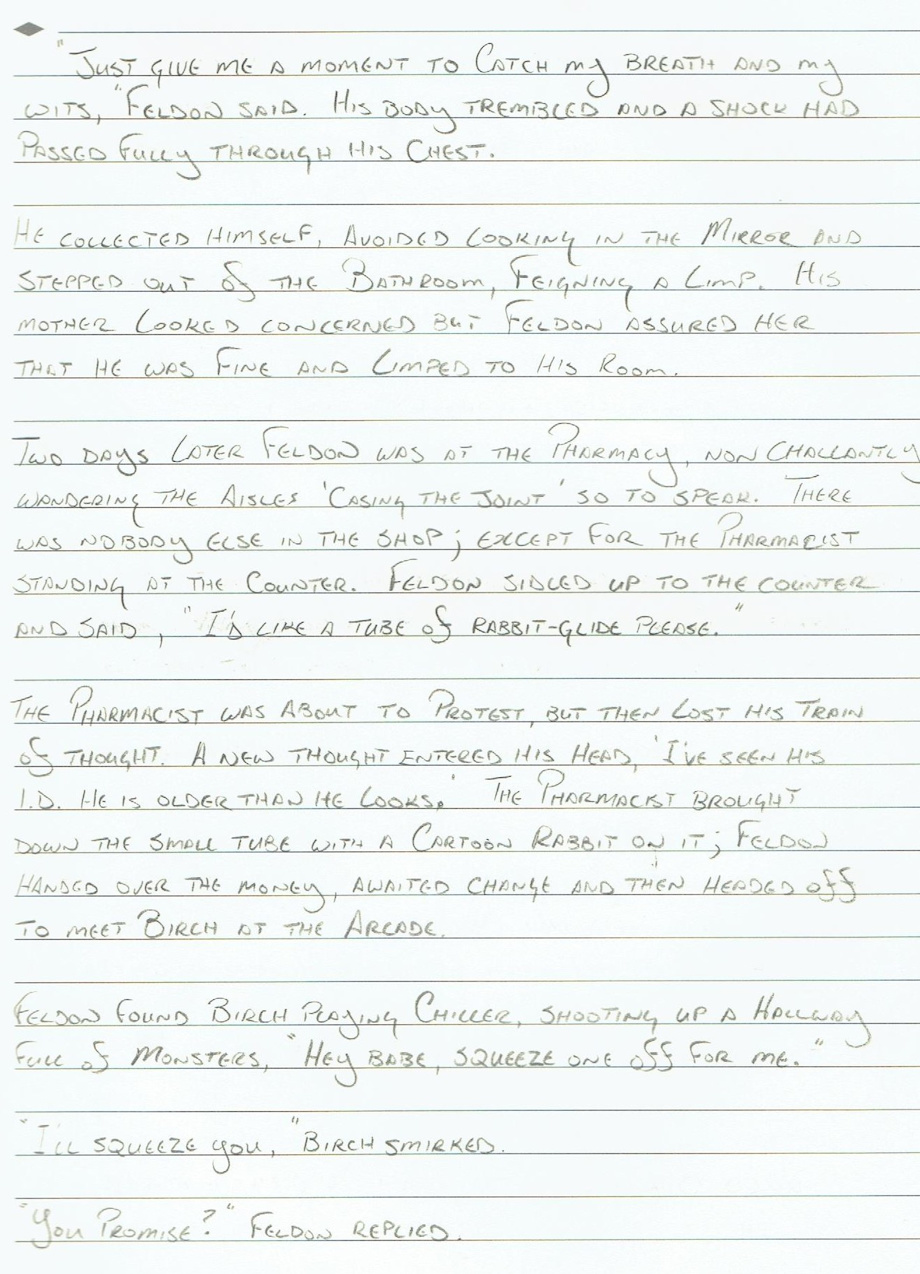 "Just give me a moment to catch my breath and my
wits," Feldon said. His body trembled and a shock had
passed fully through his chest.
He collected himself, avoided looking in the mirror and
stepped out of the bathroom, feigning a limp. His
mother looked concerned but Feldon assured her
that he was fine and limped to his room.
Two days later Feldon was at the pharmacy, non challantly
wandering the aisles 'casing the joint' so to speak. There
was nobody else in the shop; except for the pharmacist
standing at the counter. Feldon sidled up to the counter
and said, "I'd like a tube of rabbit-glide please."
The pharmacist was about to protest, but then lost his train
of thought. A new thought entered his head, 'I've seen his
I.D. He is older than he looks.' The pharmacist brought
down the small tube with a cartoon rabbit on it; Feldon
handed over the money, awaited change and then headed off
to meet Birch at the arcade.
Feldon found Birch playing Chiller, shooting up a hallway
full of monsters, "Hey babe, squeeze one off for me."
"I'll squeeze you," Birch smirked.
"You promise?" Feldon replied.